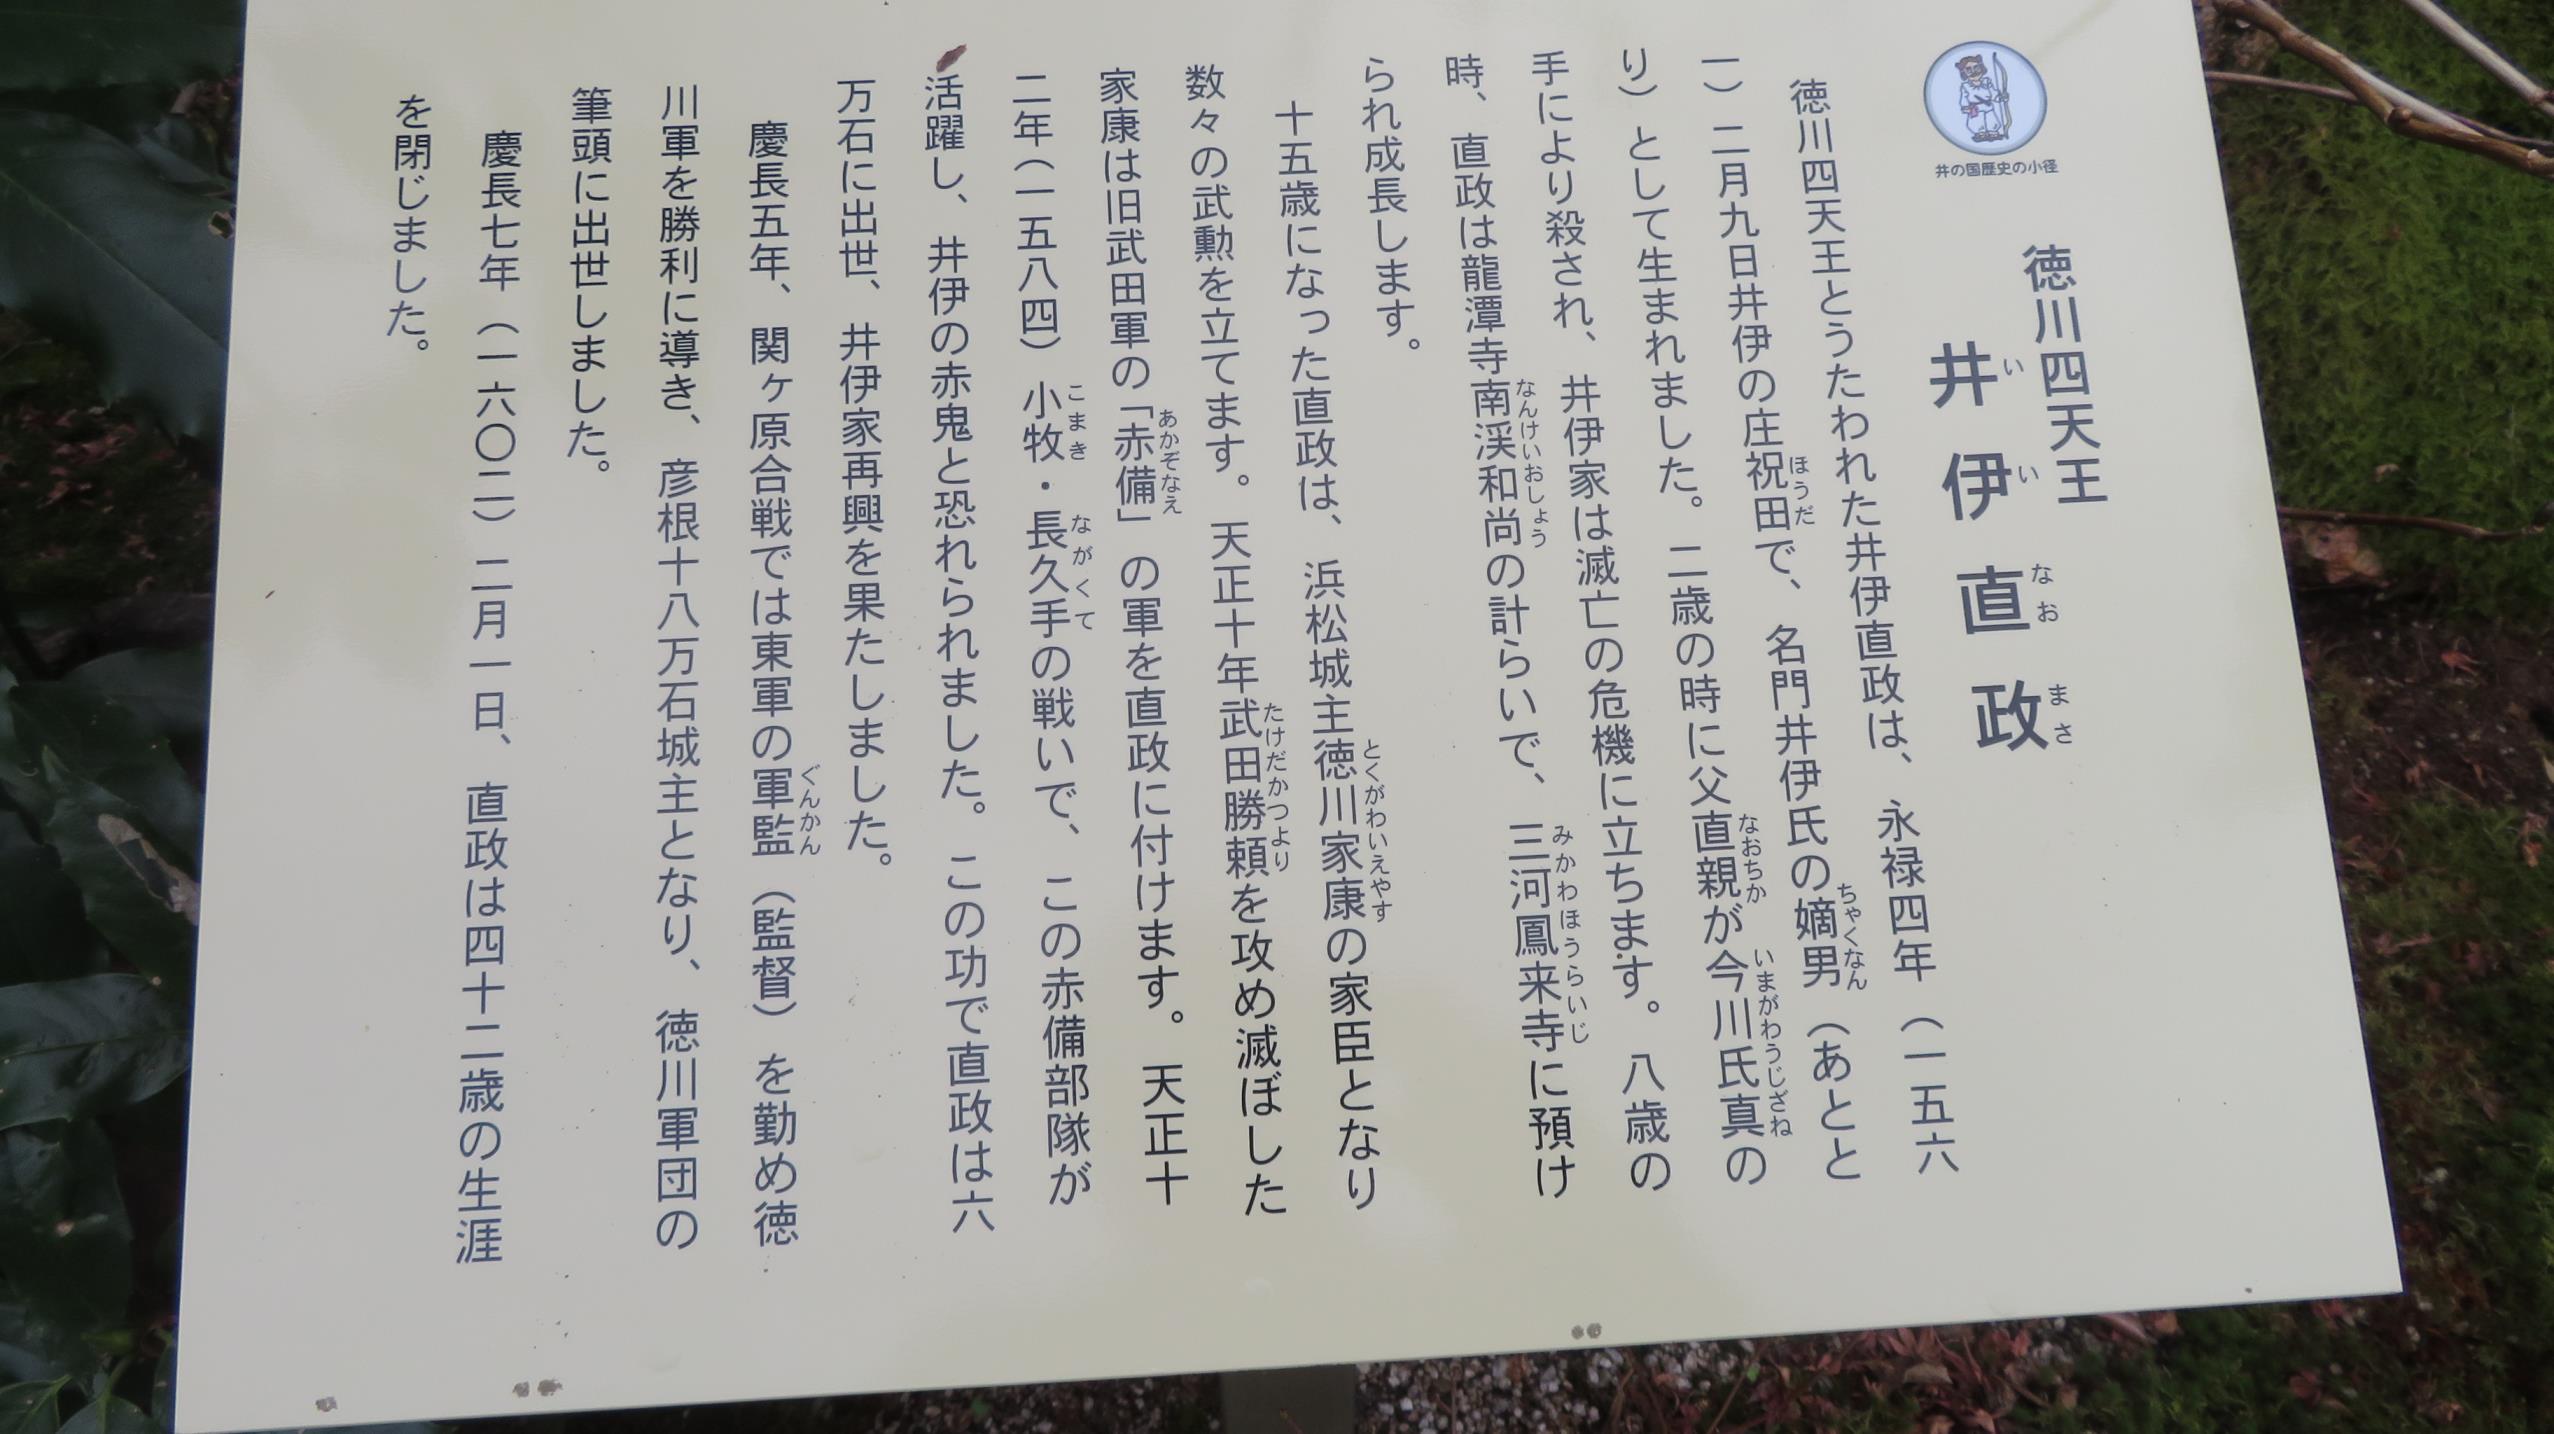 井の国歴史の小径
徳川四天王
井伊直政
いいなおまさ
徳川四天王とうたわれた井伊直政は、永禄四年(一五六
一)二月九日井伊の庄祝田で、名門井伊氏の嫡男(あとと
ほうだ ちゃくなん
り)として生まれました。二歳の時に父直親が今川氏真の
なおちか いまがわうじざね
手により殺され、井伊家は滅亡の危機に立ちます。八歳の
時、直政は龍潭寺南渓和尚の計らいで、三河鳳来寺に預け
なんけいおしょう みかわほうらいじ
られ成長します。
十五歳になった直政は、浜松城主徳川家康の家臣となり
とくがわいえやす
数々の武勲を立てます。天正十年武田勝頼を攻め滅ぼした
たけだかつより
家康は旧武田軍の「赤備」の軍を直政に付けます。天正十
あかぞなえ
二年(一五八四)小牧・長久手の戦いで、この赤備部隊が
こまき ながくて
活躍し、井伊の赤鬼と恐れられました。この功で直政は六
万石に出世、井伊家再興を果たしました。
慶長五年、関ヶ原合戦では東軍の軍監(監督)を勤め徳
ぐんかん
川軍を勝利に導き、彦根十八万石城主となり、徳川軍団の
筆頭に出世しました。
慶長七年(一六〇二)二月一日、直政は四十二歳の生涯
を閉じました。